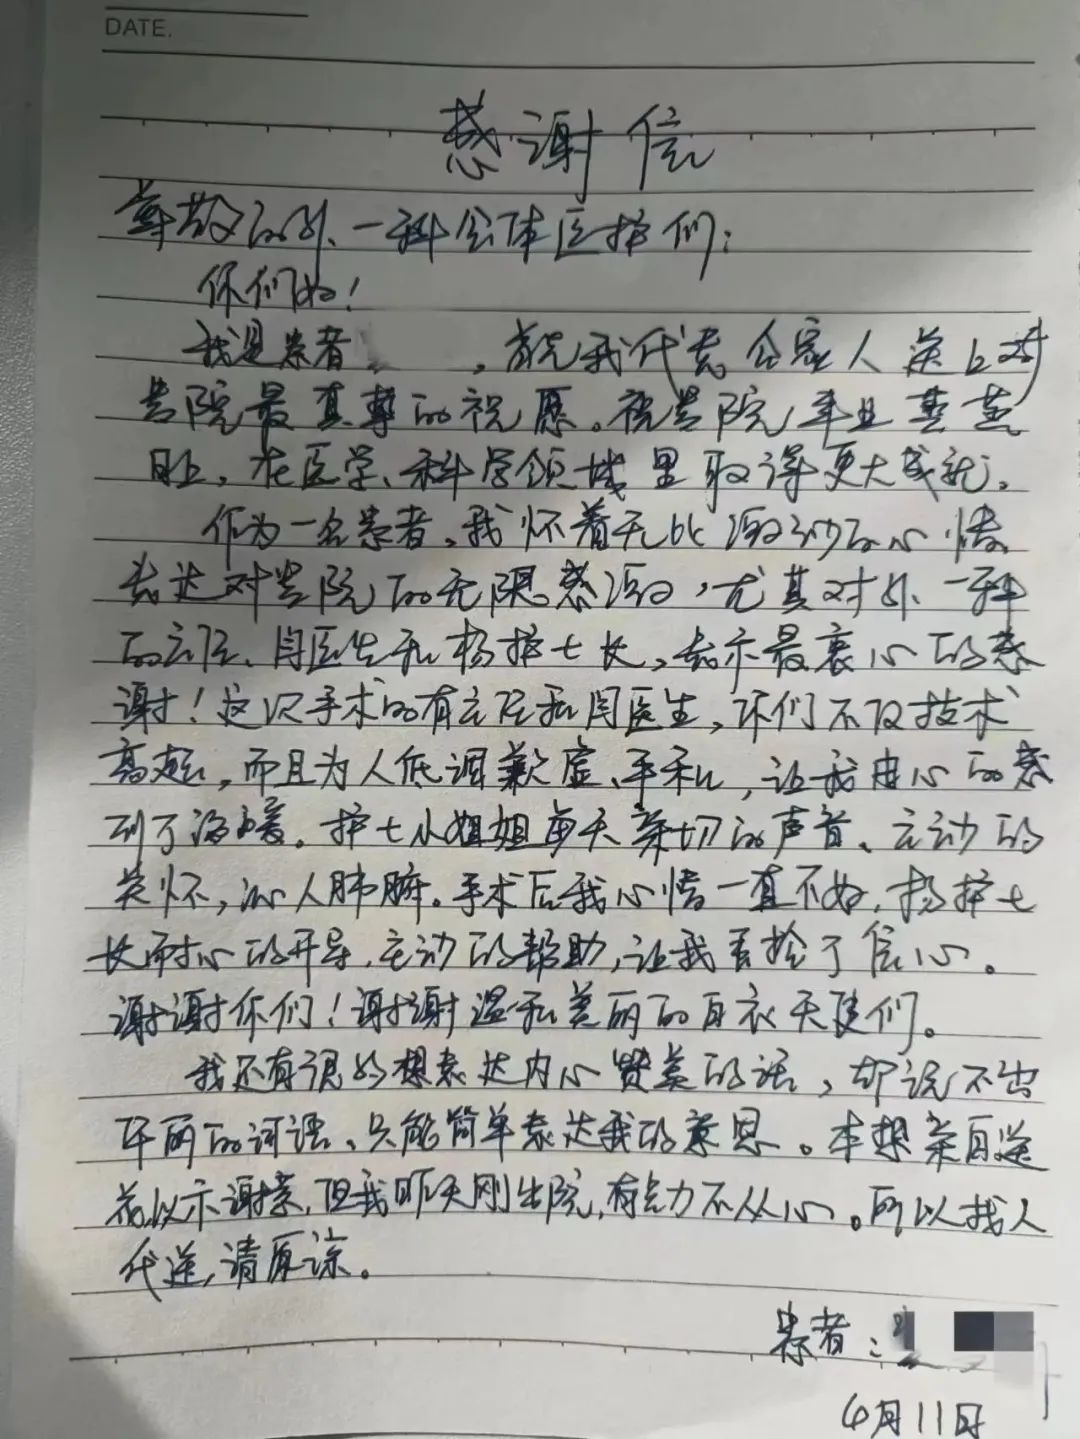 DATE.
感谢信
尊敬的外一科全体医护们：
你们好！
我是患者　　，首先我代表全家人送上对
贵院最真挚的祝愿。祝贵院事业蒸蒸
日上，在医学、科学领域里取得更大成就。
作为一名患者，我怀着无比激动的心情
表达对贵院的无限感激，尤其对外一科
的主任、闫医生和杨护士长，表示最衷心的感
谢！这次手术的有主任和闫医生，你们不仅技术
高超，而且为人低调谦虚、平和，让我由心的感
到了温暖。护士小姐姐每天亲切的声音、主动的
关怀，沁人肺腑。手术后我心情一直不好，杨护士
长耐心的开导，主动的帮助，让我重拾了信心。
谢谢你们！谢谢温和美丽的白衣天使们。
我还有很好想表达内心赞美的话，却说不出
华丽的词语、只能简单表达我的意思。本想亲自送
花以示谢意，但我昨天刚出院，有点力不从心。所以找人
代送，请原谅。
患者：
4月11日